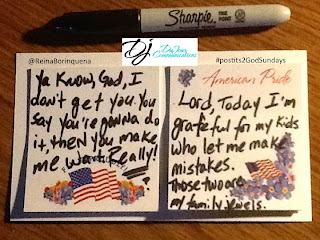 Sharpie
FINE POINT
@ReinaBorinquena
DJ
DaJoux
Communications
#postits2GodSundays
Ya Know, God, I
don't get you. You
say you're gonna do
it, then you make
me wait. Really!
American Pride
Lord, Today I'm
grateful for my kids
who let me make
mistakes.
Those two are
my family jewels.